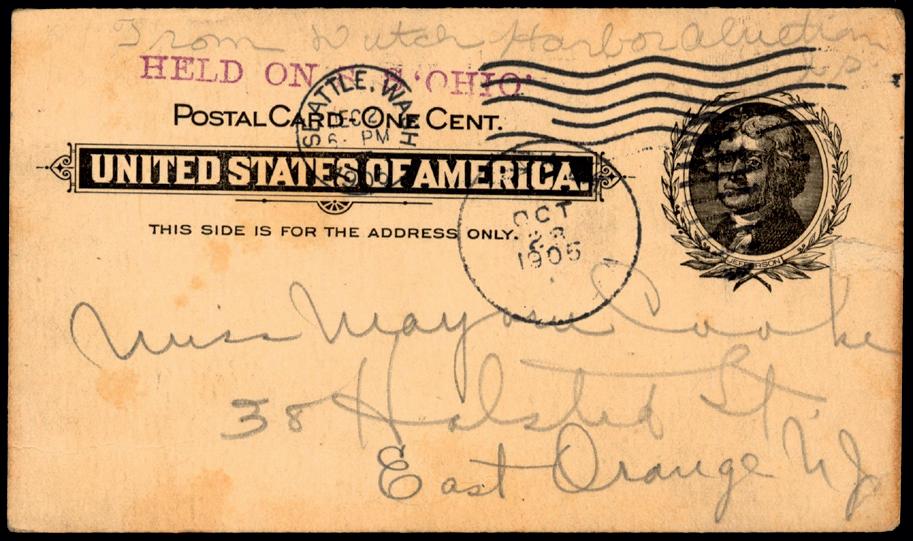 From Dutch Harbor Aluetian
HELD ON S. S. 'OHIO'
POSTAL CARD - ONE CENT.
SEATTLE, WASH
DEC 2
6 - PM
1905
UNITED STATES OF AMERICA.
THIS SIDE IS FOR THE ADDRESS ONLY.
OCT
23
1905
JEFFERSON
Miss Mayme Cooke
38 Halsted St.
East Orange NJ